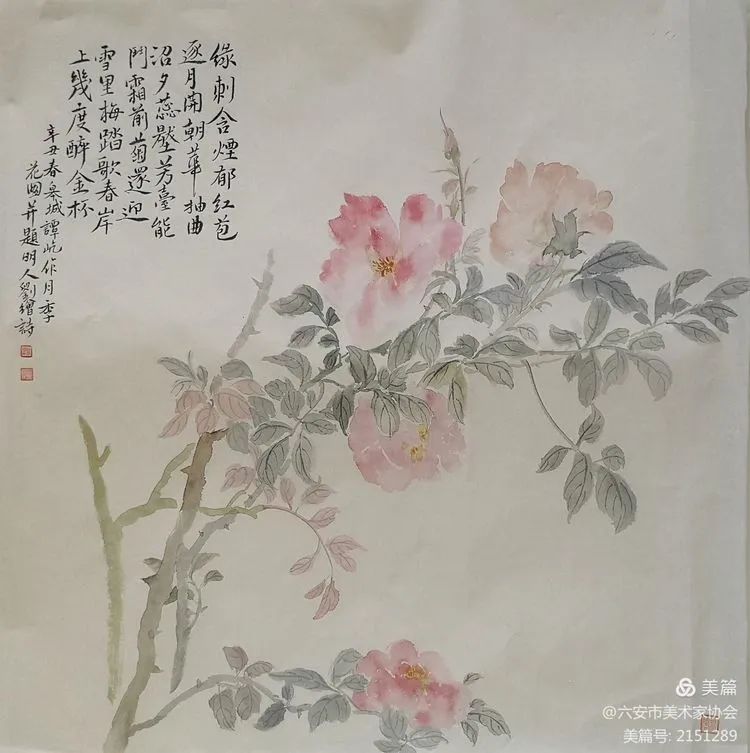 綠刺含煙郁紅苞
逐月開朝華抽曲
沼夕蕊壓芳臺能
鬥霜前菊還迎
雪里梅踏歌春岸
上幾度醉金杯
辛丑春皋城譚屹作月季
花図并題明人劉繪詩
美篇
@六安市美术家协会
美篇号: 2151289